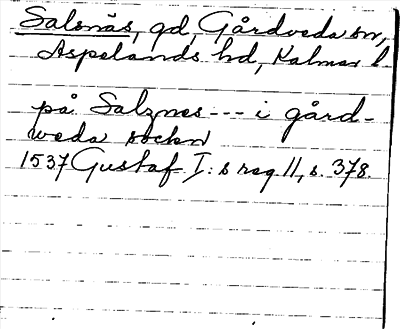 Salsnäs, gd, Gårdveda sn,
Aspelands hd, Kalmar l
på Salznes --- i gård-
weda sockn
1537 Gustaf I:s reg 11, s. 378.